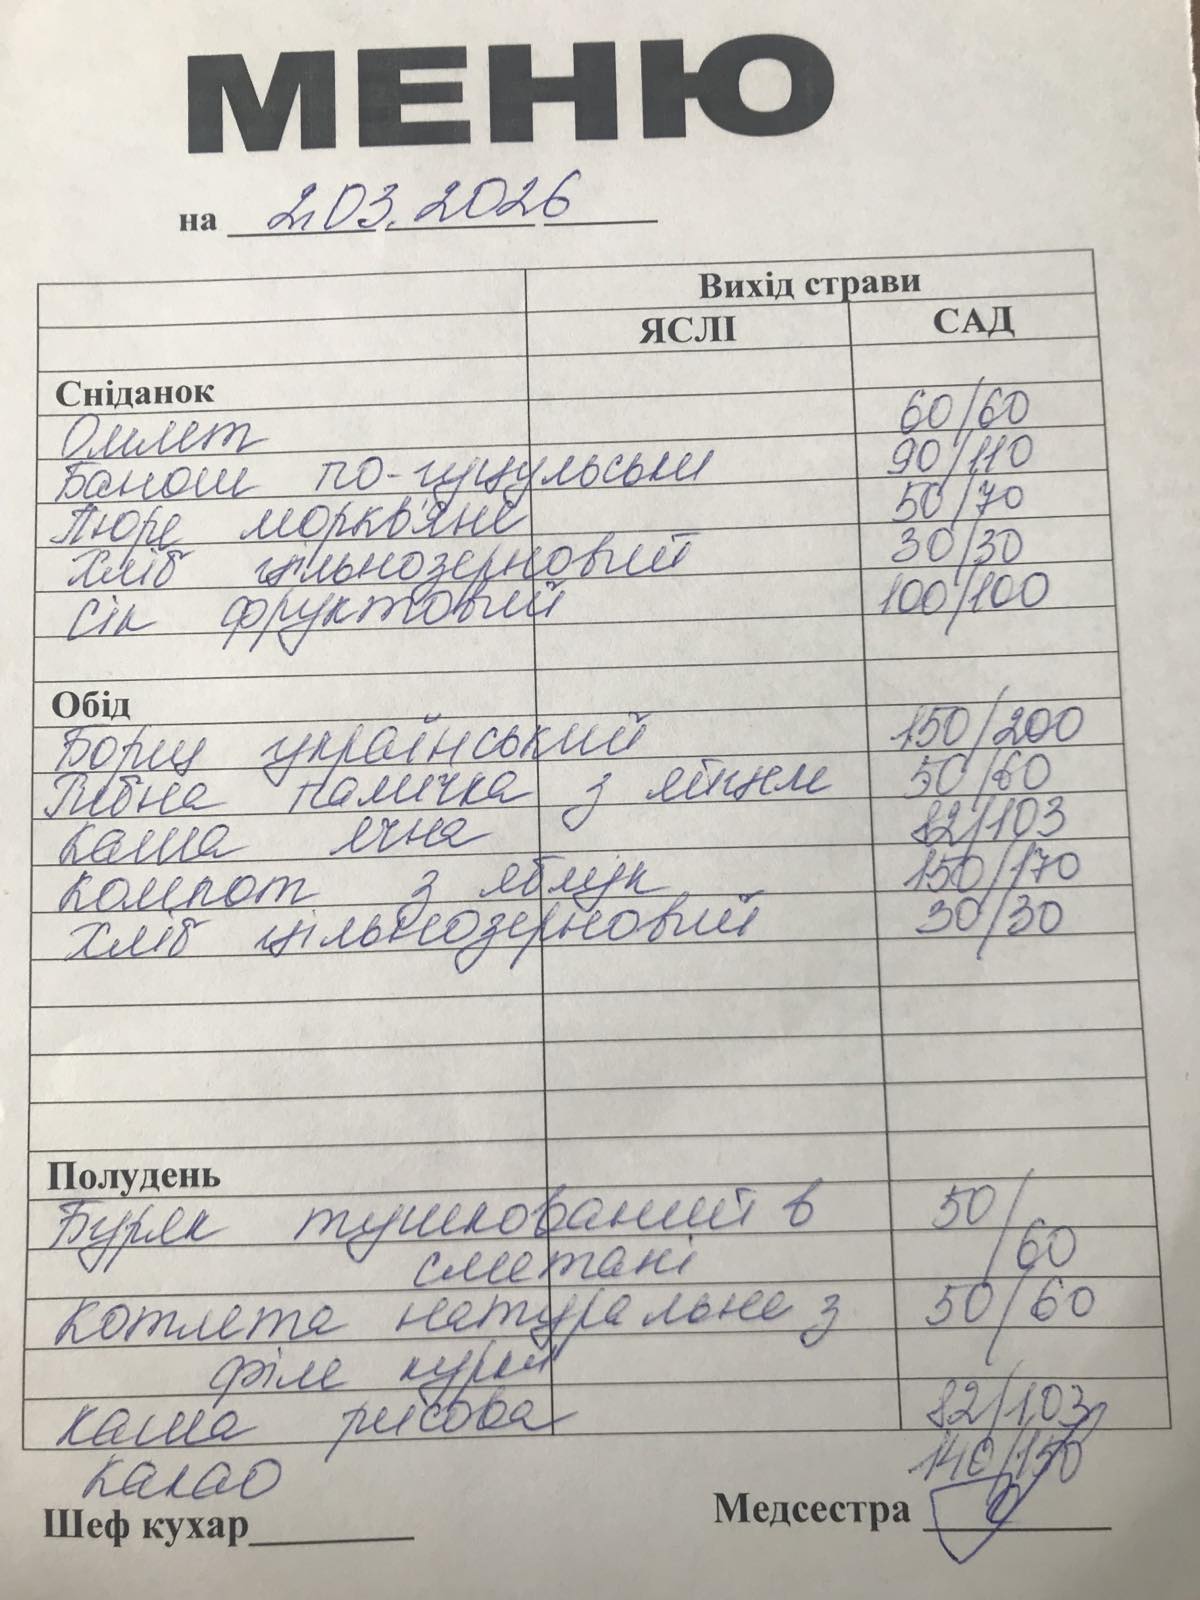 МЕНЮ
на 2.03.2026
Вихід страви
ЯСЛІ САД
Сніданок
Омлет 60/60
Банош по-гуцульськи 90/110
Пюре морквяне 50/70
Хліб цільнозерновий 30/30
Сік фруктовий 100/100
Обід
Борщ український 150/200
Рибна паличка з яйцем 50/60
Каша ячна 82/103
Компот з яблук 150/170
Хліб цільнозерновий 30/30
Полудень
Буряк тушкований в 50/
сметані 60
Котлета натуральна з 50/60
філе курки
Каша рисова 82/103
Какао 140/150
Шеф кухар
Медсестра